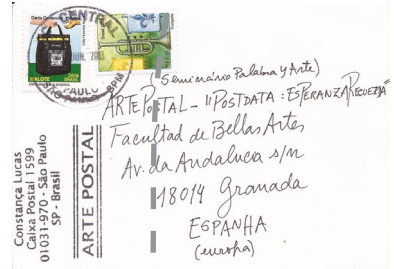 CENTRAL
JUN. 2013
PAULO
BPM
2009
MALOTE BRASIL
(Seminário Palabra y Arte)
ARTE POSTAL - "POSTDATA: ESPERANZA
Facultad de Bellas Artes
Av. da Andalucía s/n
18014 Granada
ESPANHA
(europa)
Constança Lucas
Caixa Postal 1599
01031-970 - São Paulo
SP - Brasil
ARTE POSTAL